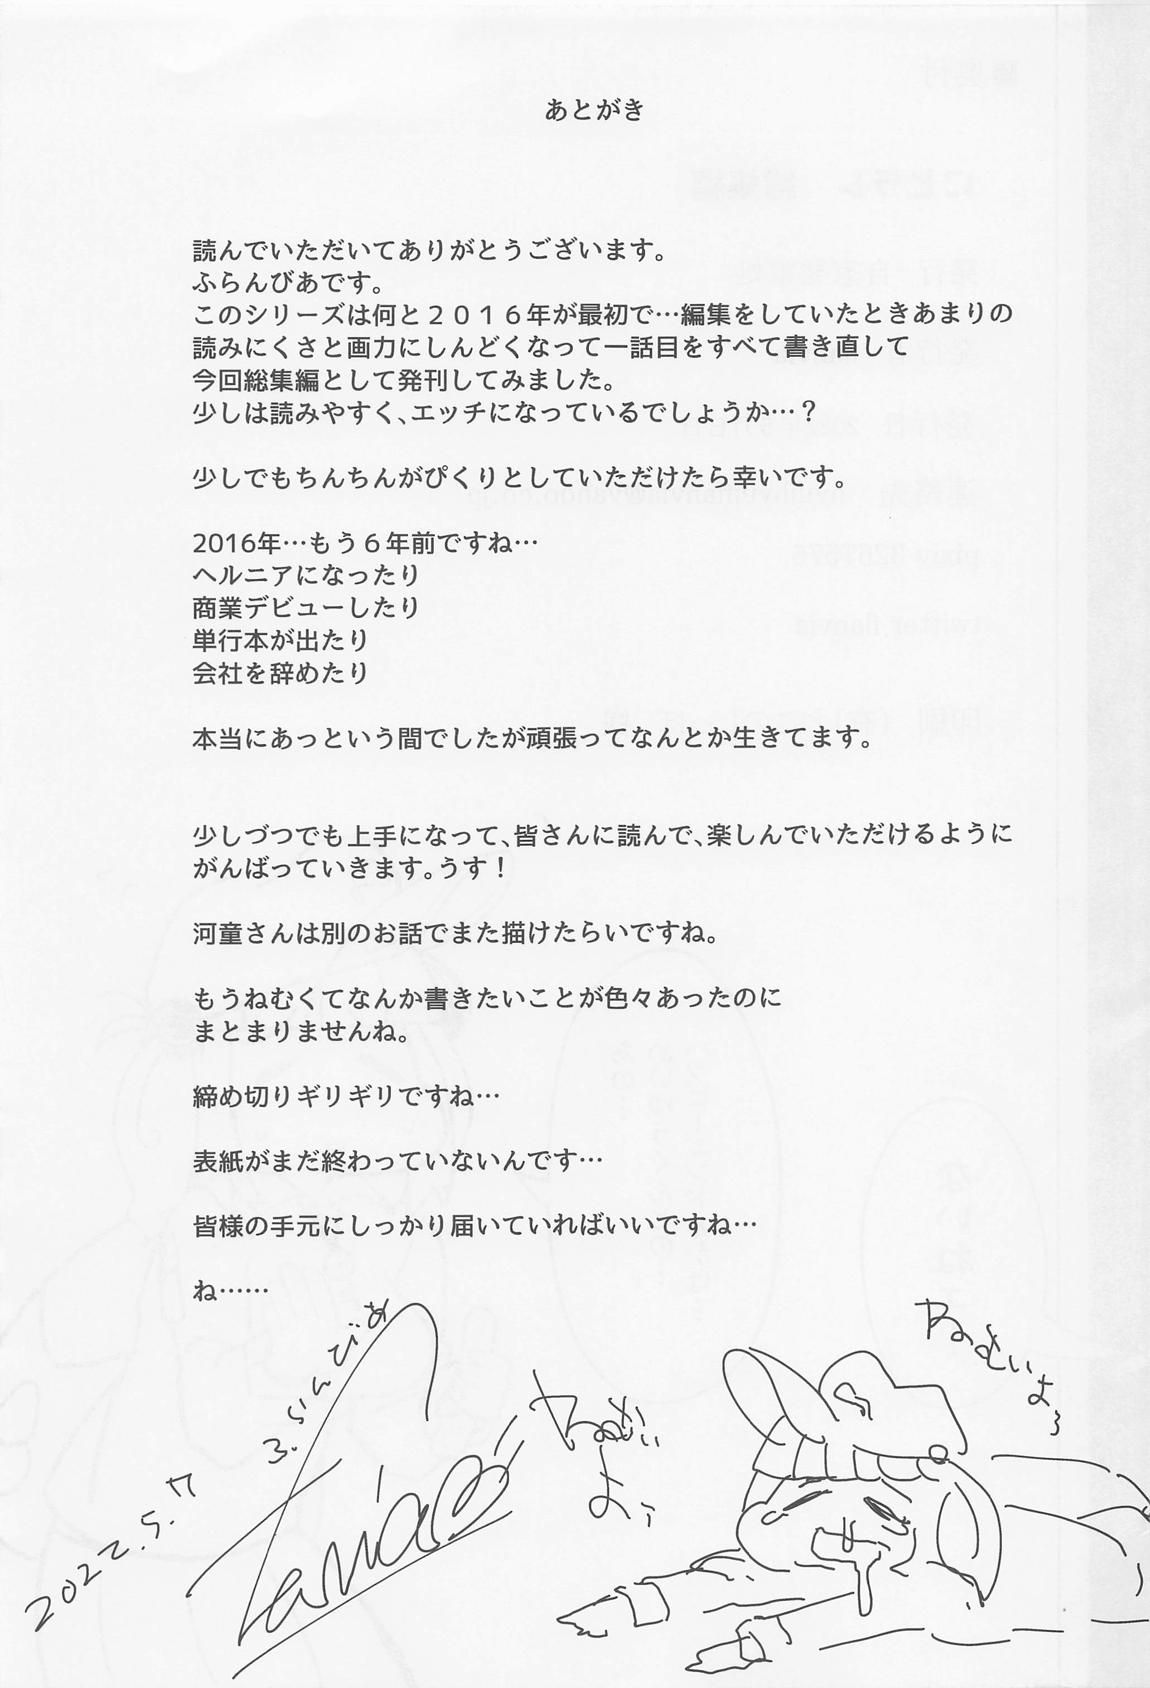 あとがき
読んでいただいてありがとうございます。
ふらんびあです。
このシリーズは何と２０１６年が最初で…編集をしていたときあまりの
読みにくさと画力にしんどくなって一話目をすべて書き直して
今回総集編として発刊してみました。
少しは読みやすく、エッチになっているでしょうか…？
少しでもちんちんがぴくりとしていただけたら幸いです。
2016年…もう６年前ですね…
ヘルニアになったり
商業デビューしたり
単行本が出たり
会社を辞めたり
本当にあっという間でしたが頑張ってなんとか生きてます。
少しづつでも上手になって、皆さんに読んで、楽しんでいただけるように
がんばっていきます。うす！
河童さんは別のお話でまた描けたらいですね。
もうねむくてなんか書きたいことが色々あったのに
まとまりませんね。
締め切りギリギリですね…
表紙がまだ終わっていないんです…
皆様の手元にしっかり届いていればいいですね…
ね……
ふらんびあ
ねむいよぅ
ねむいよぅ